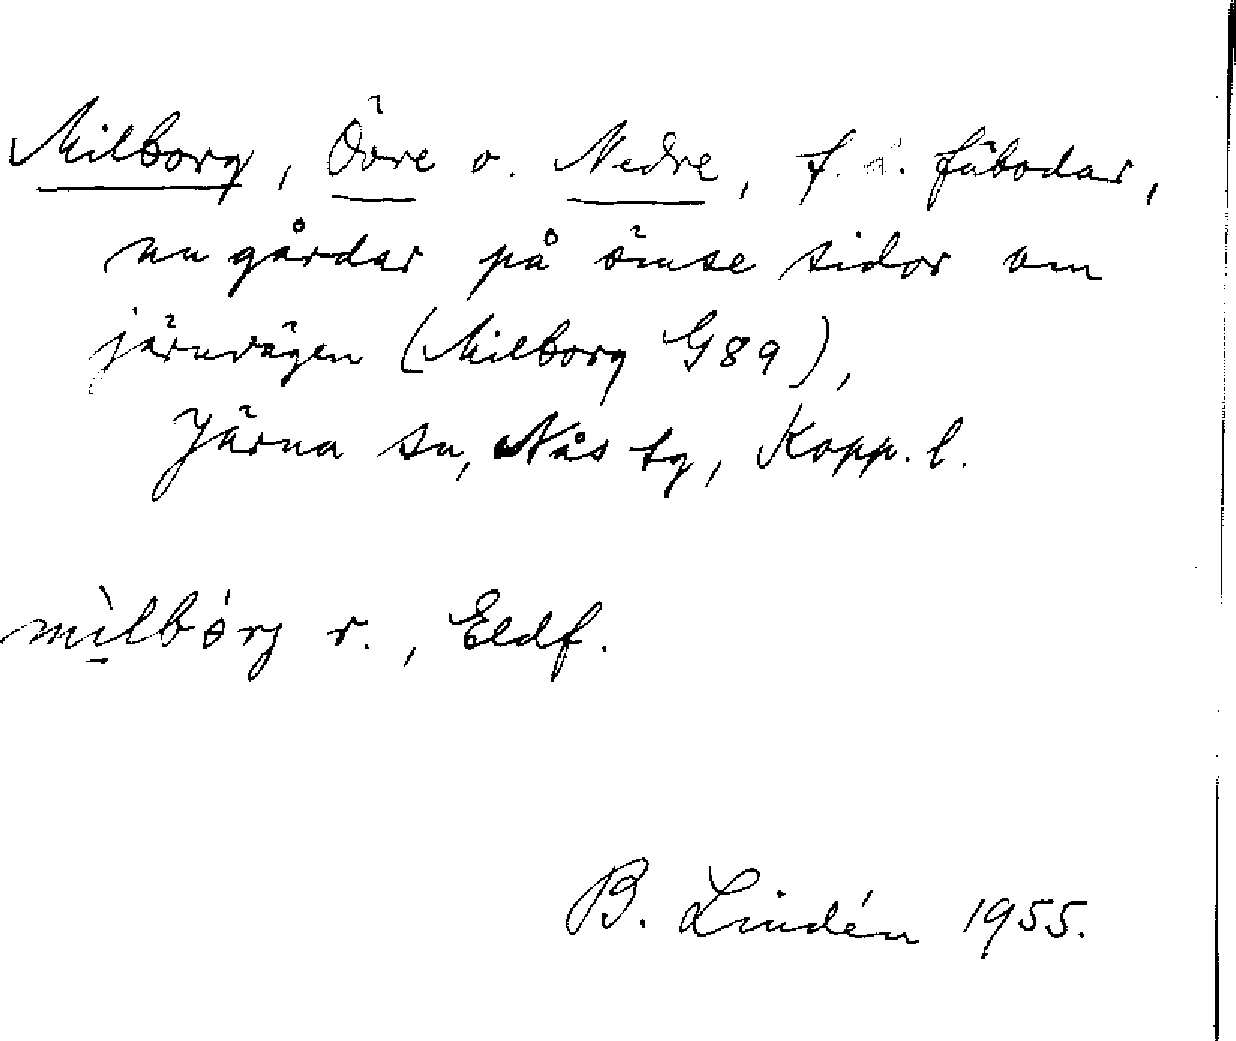 Milborg, Övre o. Nedre, f. d. fäbodar,
nu gårdar på ömse sidor om
järnvägen (Milborg G89),
Järna sn, Nås tg, Kopp. l.
mì̠lbórg r., Eldf.
B. Lindén 1955.